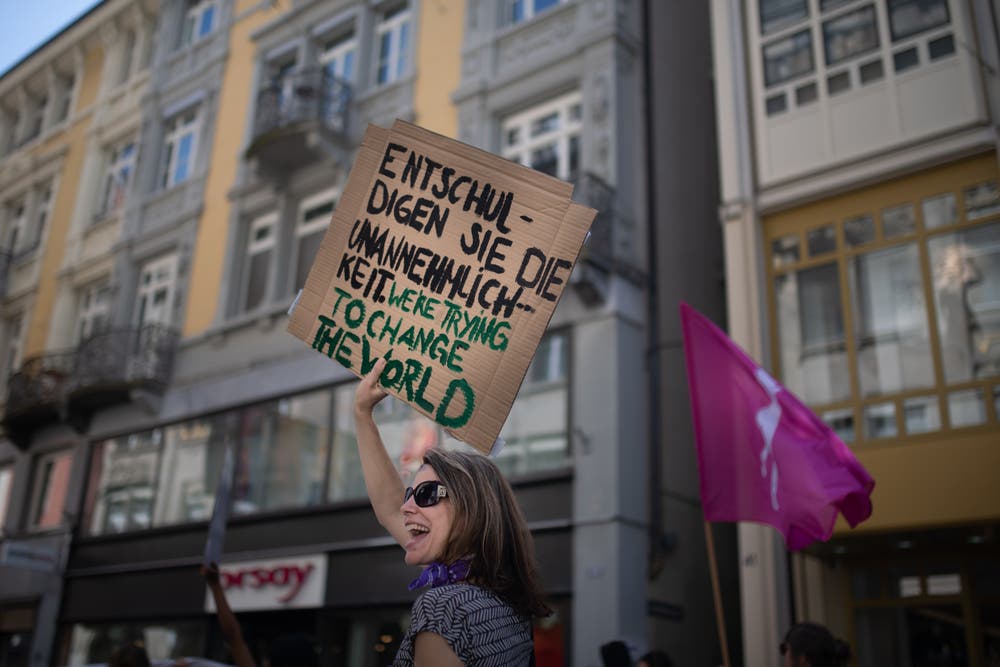 ENTSCHUL-
DIGEN SIE DIE
UNANNEHMLICH-
KEIT. WE'RE TRYING
TO CHANGE
THE WORLD
orsay